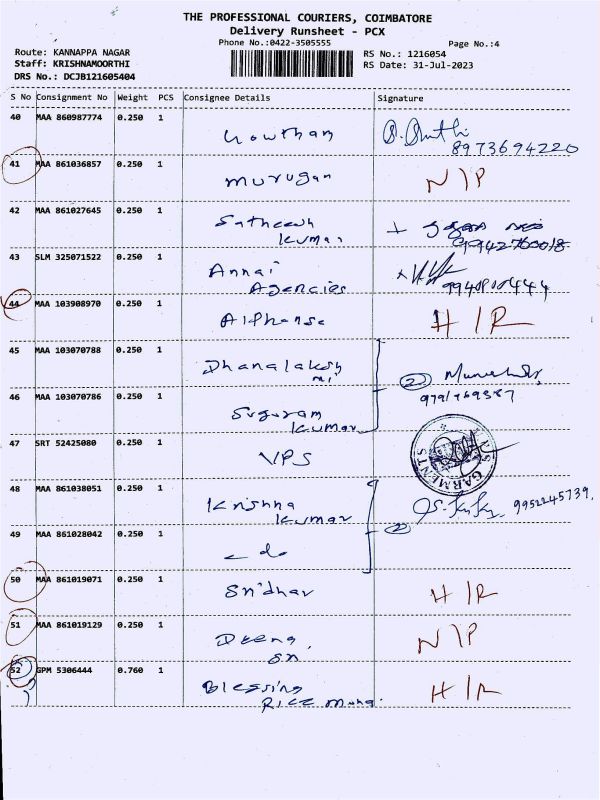 THE PROFESSIONAL COURIERS, COIMBATORE
Delivery Runsheet - PCX
Phone No.:0422-3505555
Page No.:4
Route: KANNAPPA NAGAR
RS No.: 1216054
Staff: KRISHNAMOORTHI
RS Date: 31-Jul-2023
DRS No.: DCJB121605404
S No Consignment No Weight PCS Consignee Details Signature
40 MAA 860987774 0.250 1 Gowtham
8973694220
41 MAA 861036857 0.250 1 Murugan N/P
42 MAA 861027645 0.250 1 Satheesh
Kumar
9942760018
43 SLM 325071522 0.250 1 Annai
Agencies
44 MAA 103908970 0.250 1 Alphonse H/R
45 MAA 103070788 0.250 1 Dhanalaksh
mi
2
46 MAA 103070786 0.250 1
Kumar
47 SRT 52425080 0.250 1 VPS
GARMENTS
48 MAA 861038051 0.250 1 Krishna
Kumar
9952245739
2
49 MAA 861028042 0.250 1
50 MAA 861019071 0.250 1 Sridhar H/R
51 MAA 861019129 0.250 1 N/P
52 GPM 5306444 0.760 1 Blessing H/R
Rice